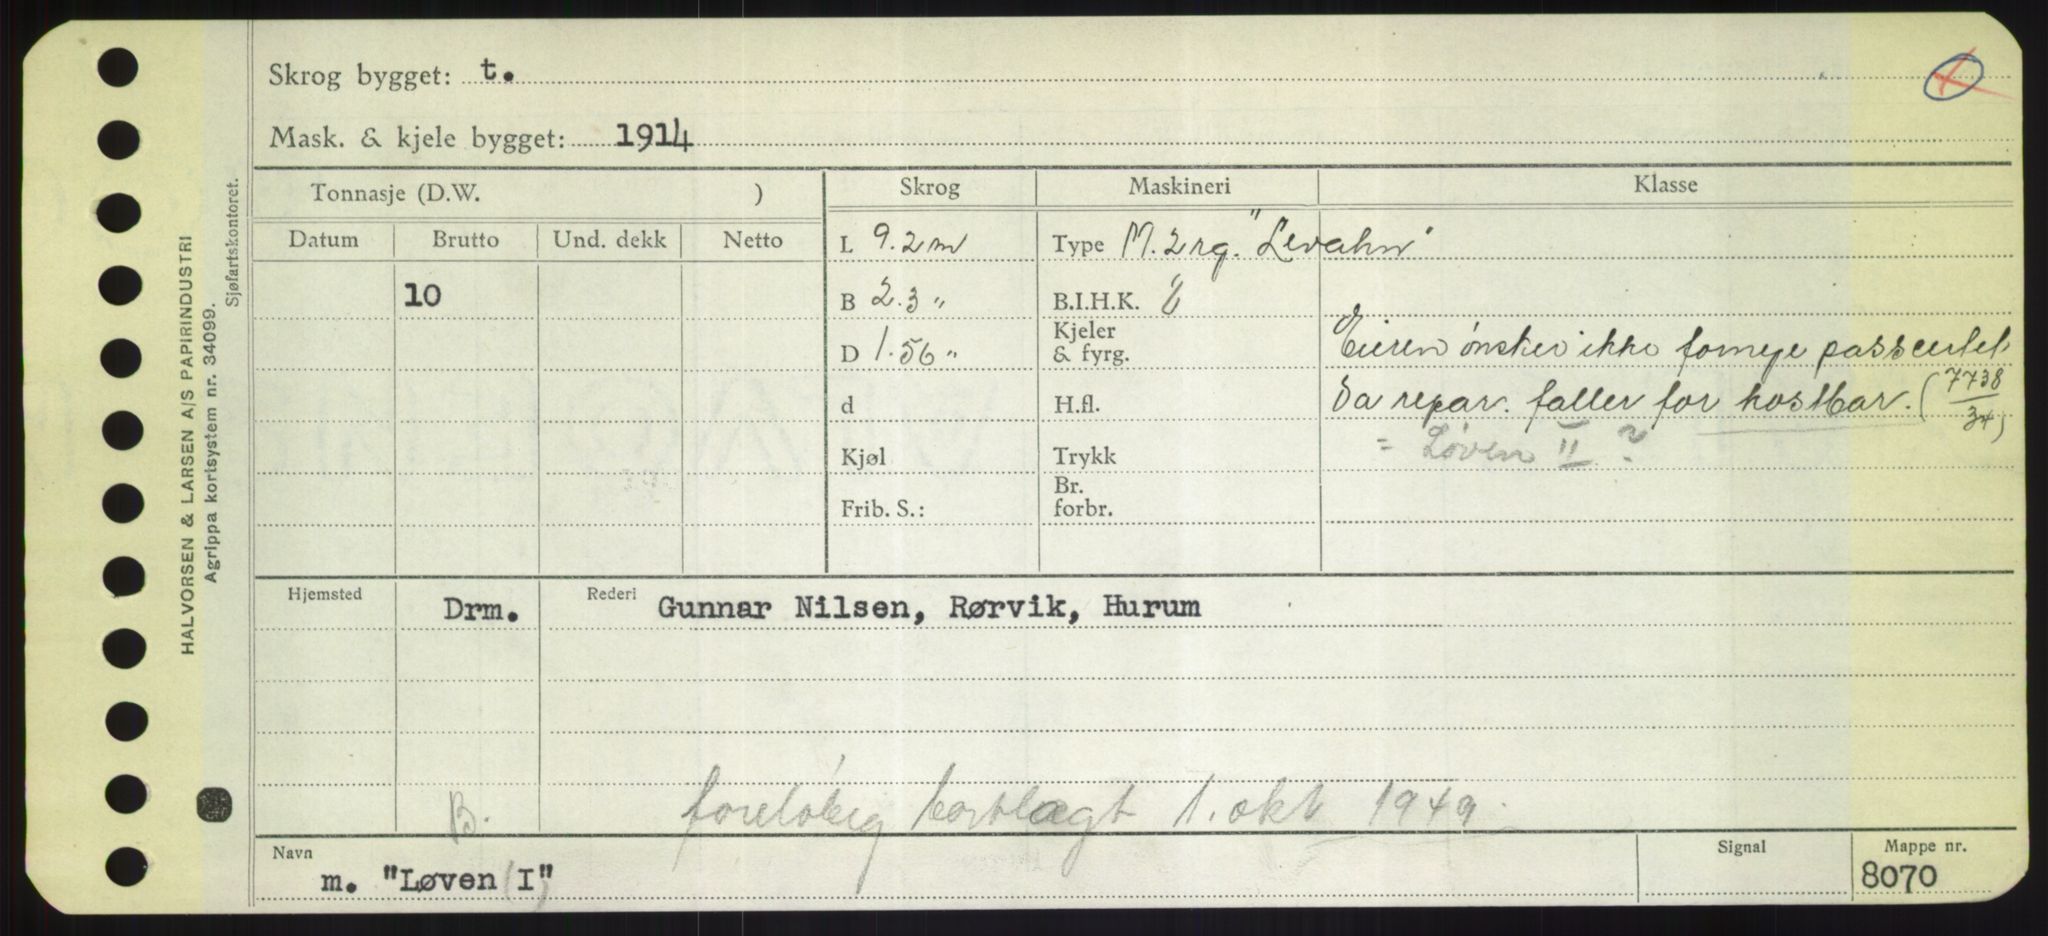 Skrog bygget: t.
Mask. & kjele bygget: 1914
Tonnasje (D.W. )
Skrog
Maskineri
Klasse
Datum
Brutto
Und. dekk
Netto
L 9.2 m
Type M. 2 rg. "Levahn"
10
B 2.3 "
B.I.H.K.
D 1.56 "
Kjeler
& fyrg.
Eieren ønsker ikke fornye passcertef.
da repar. faller for kostbar. (7738/34)
d
H.fl.
= Løven II ?
Kjøl
Trykk
Frib. S.:
Br.
forbr.
Hjemsted Drm.
Rederi Gunnar Nilsen, Rørvik, Hurum
B. foreløbig bortlagt 1. okt 1949.
Navn
m. "Løven (I)"
Signal
Mappe nr.
8070
HALVORSEN & LARSEN A/S PAPIRINDUSTRI
Agrippa kortsystem nr. 34099.
Sjøfartskontoret.